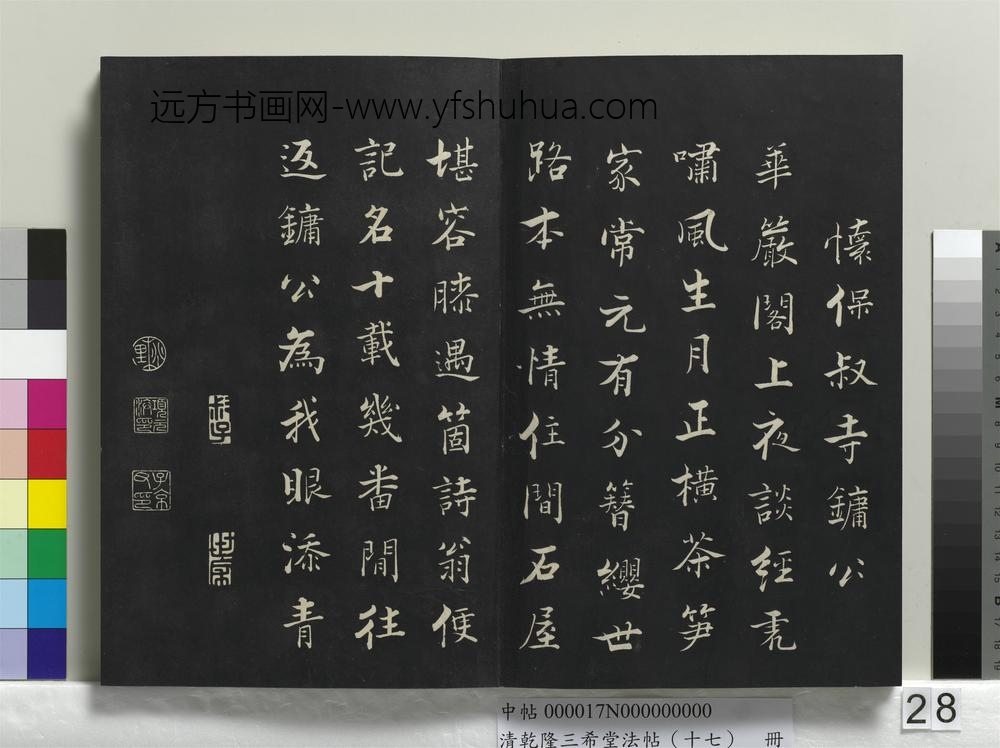 远方书画网-www.yfshuhua.com
懷保叔寺鏞公
華嚴閣上夜談經虎
嘯風生月正橫茶笋
家常元有分簪纓世
路本無情住間石屋
堪容膝遇箇詩翁便
記名十載幾番閒往
返鏞公為我眼添青
中帖 000017N000000000
清乾隆三希堂法帖（十七） 冊
28